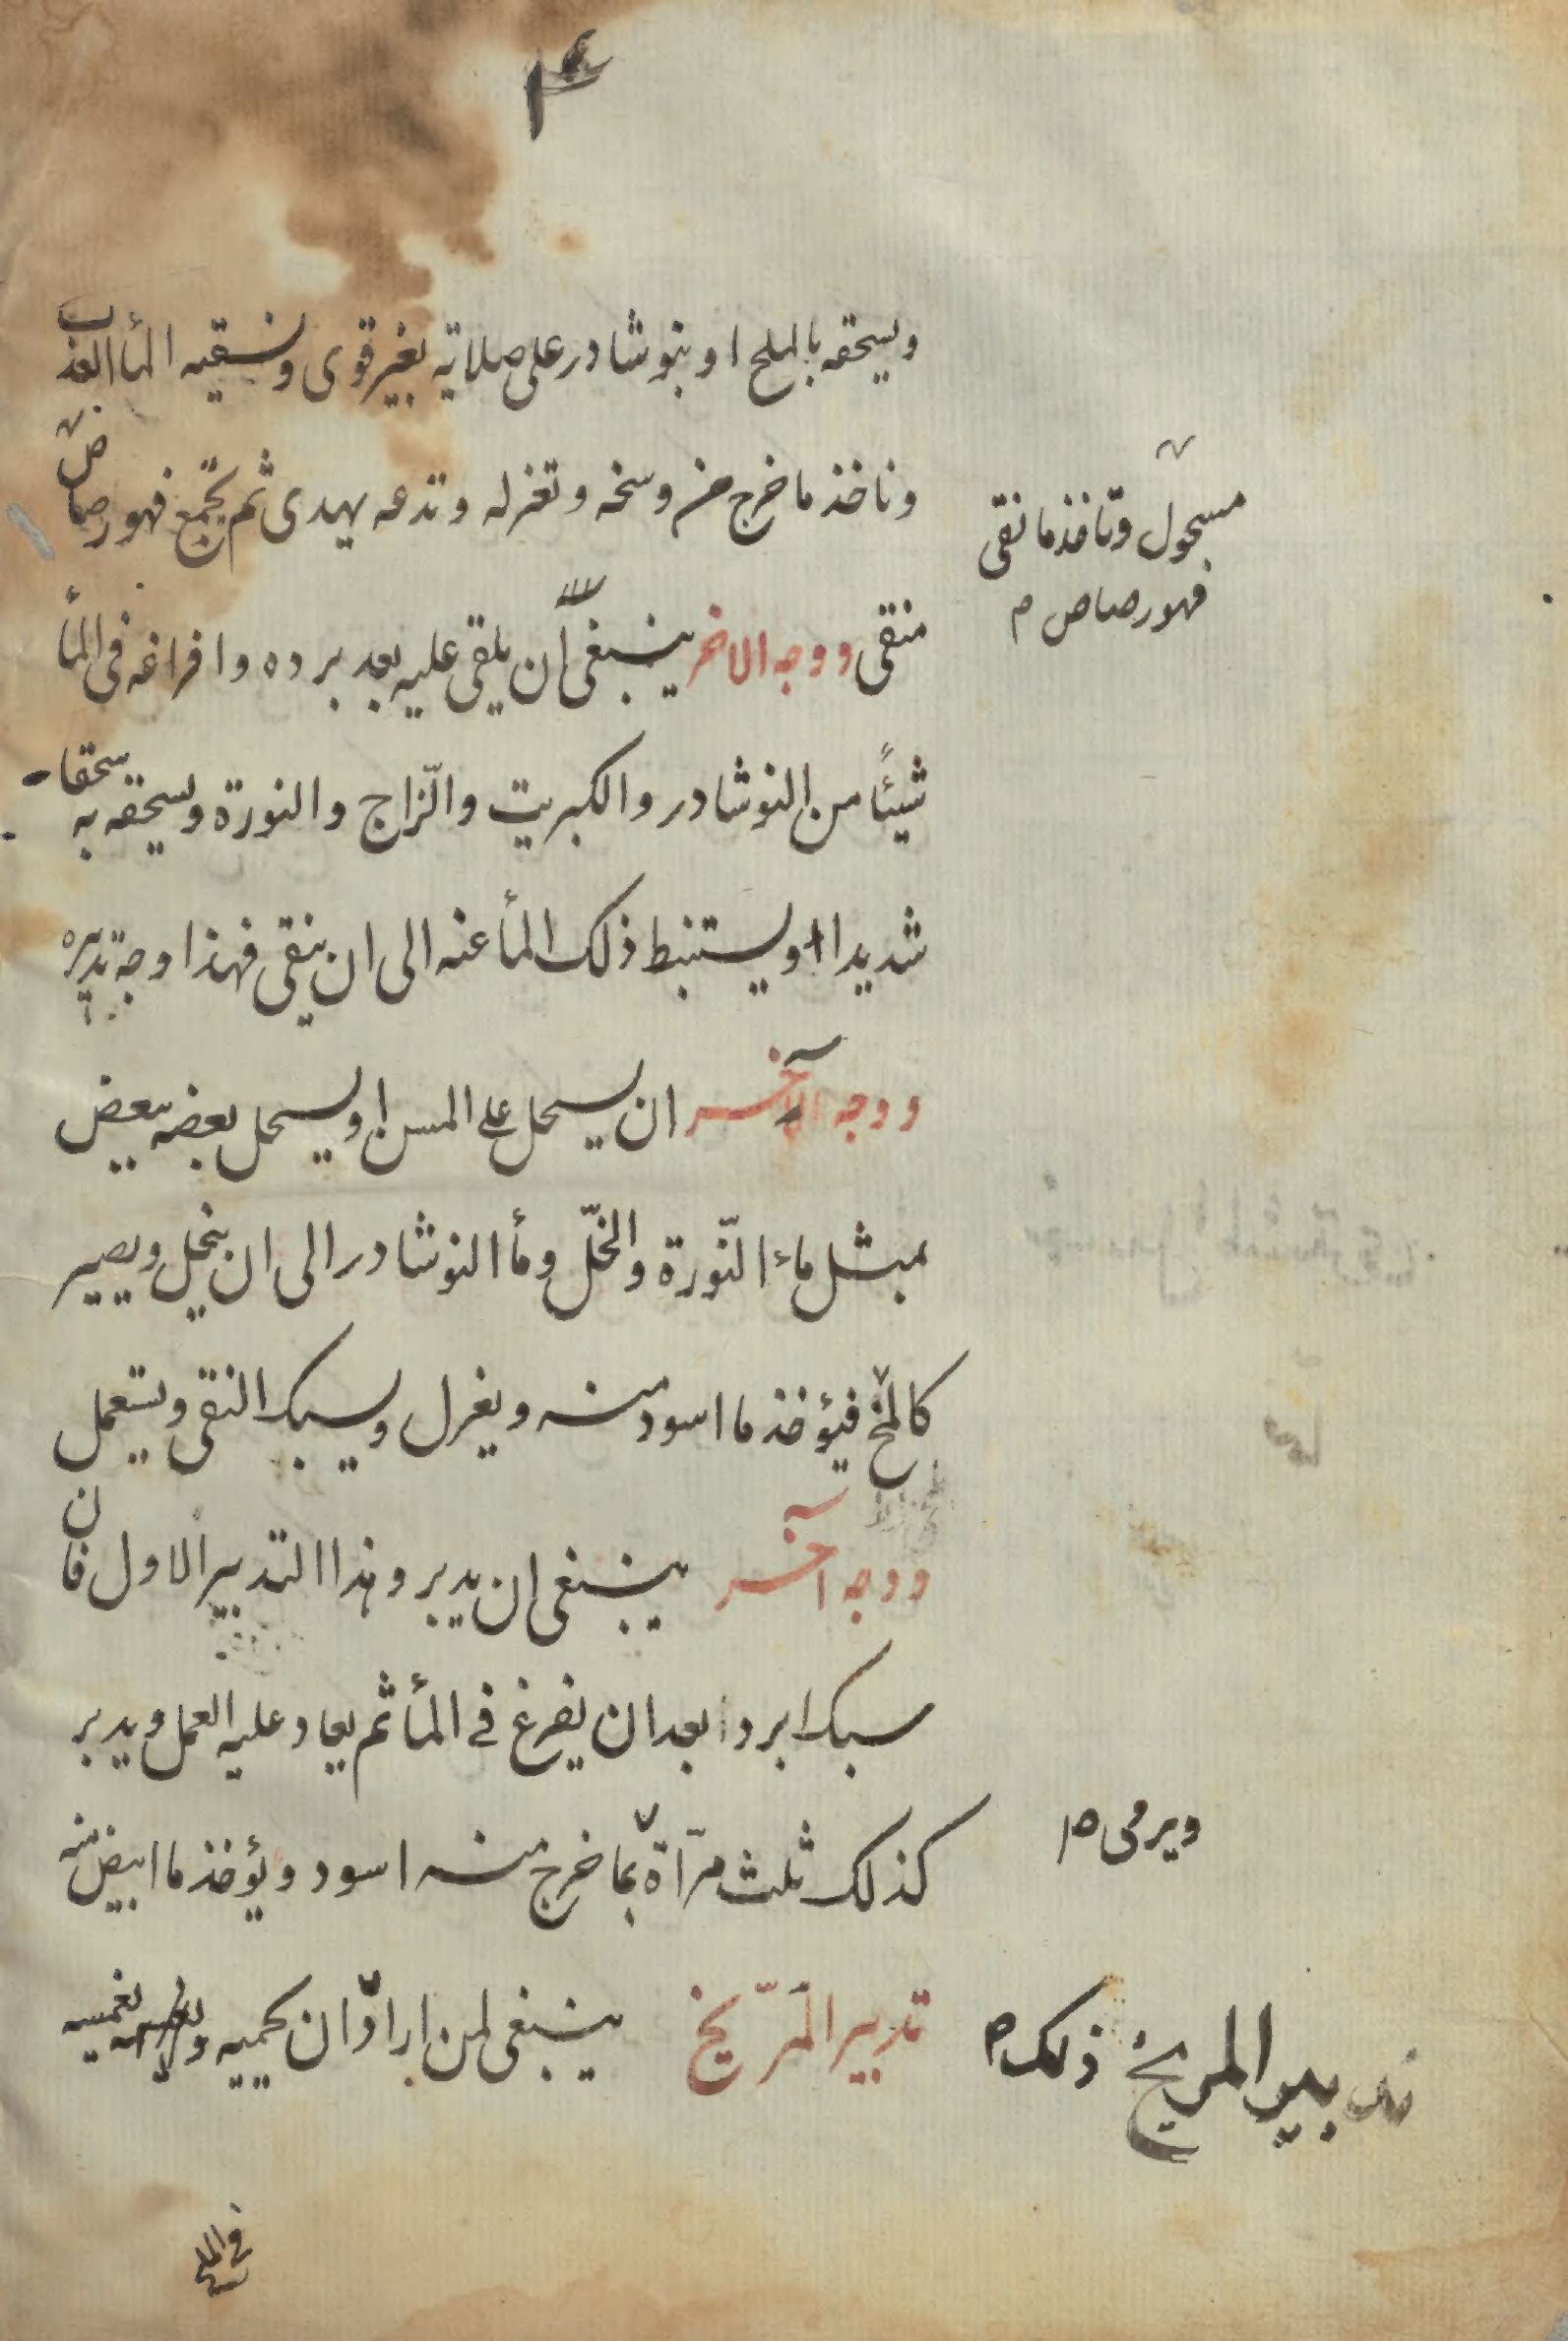 ويسحقه بالملح او بنوشادر على صلاتيه بغير قوى ونسقيه المأ العذب
وناخذ ما خرج من وسخه وتعزله وتدعه يهدى ثم تجمع فهو رصاص
مسحول وتأخذ ما نقى
فهو رصاص م
منقى ووجه الاخر ينبغى ان يلقى عليه بعد برده وافراغه فى المأ
شيئًا من النوشادر والكبريت والزّاج والنورة ويسحقه به سحقا
شديدا او يستنبط ذلك المأ عنه الى ان ينقى فهذا وجه تدبيره
ووجه الآخر ان يسحل على المسن او يسحل بعضه ببعض
بمثل مائ النّورة والخلّ ومأ النوشادر الى ان ينحل ويصير
كالمخ فيؤخذ ما اسود منه ويغزل ويسبك النقى ويستعمل
ووجه آخر ينبغى ان يدبر وهذا التدبير الاول فان
سبك ابردا بعد ان يفرغ فى المأ ثم يعاد عليه العمل ويدبر
كذلك ثلث مرآة بما خرج منه اسود ويؤخذ ما ابيض منه
ويرمى ص
تدبير المرّيخ ينبغى لمن اراد ان يحميه ويغمسه
تدبير المريخ ذلك
فى الملح